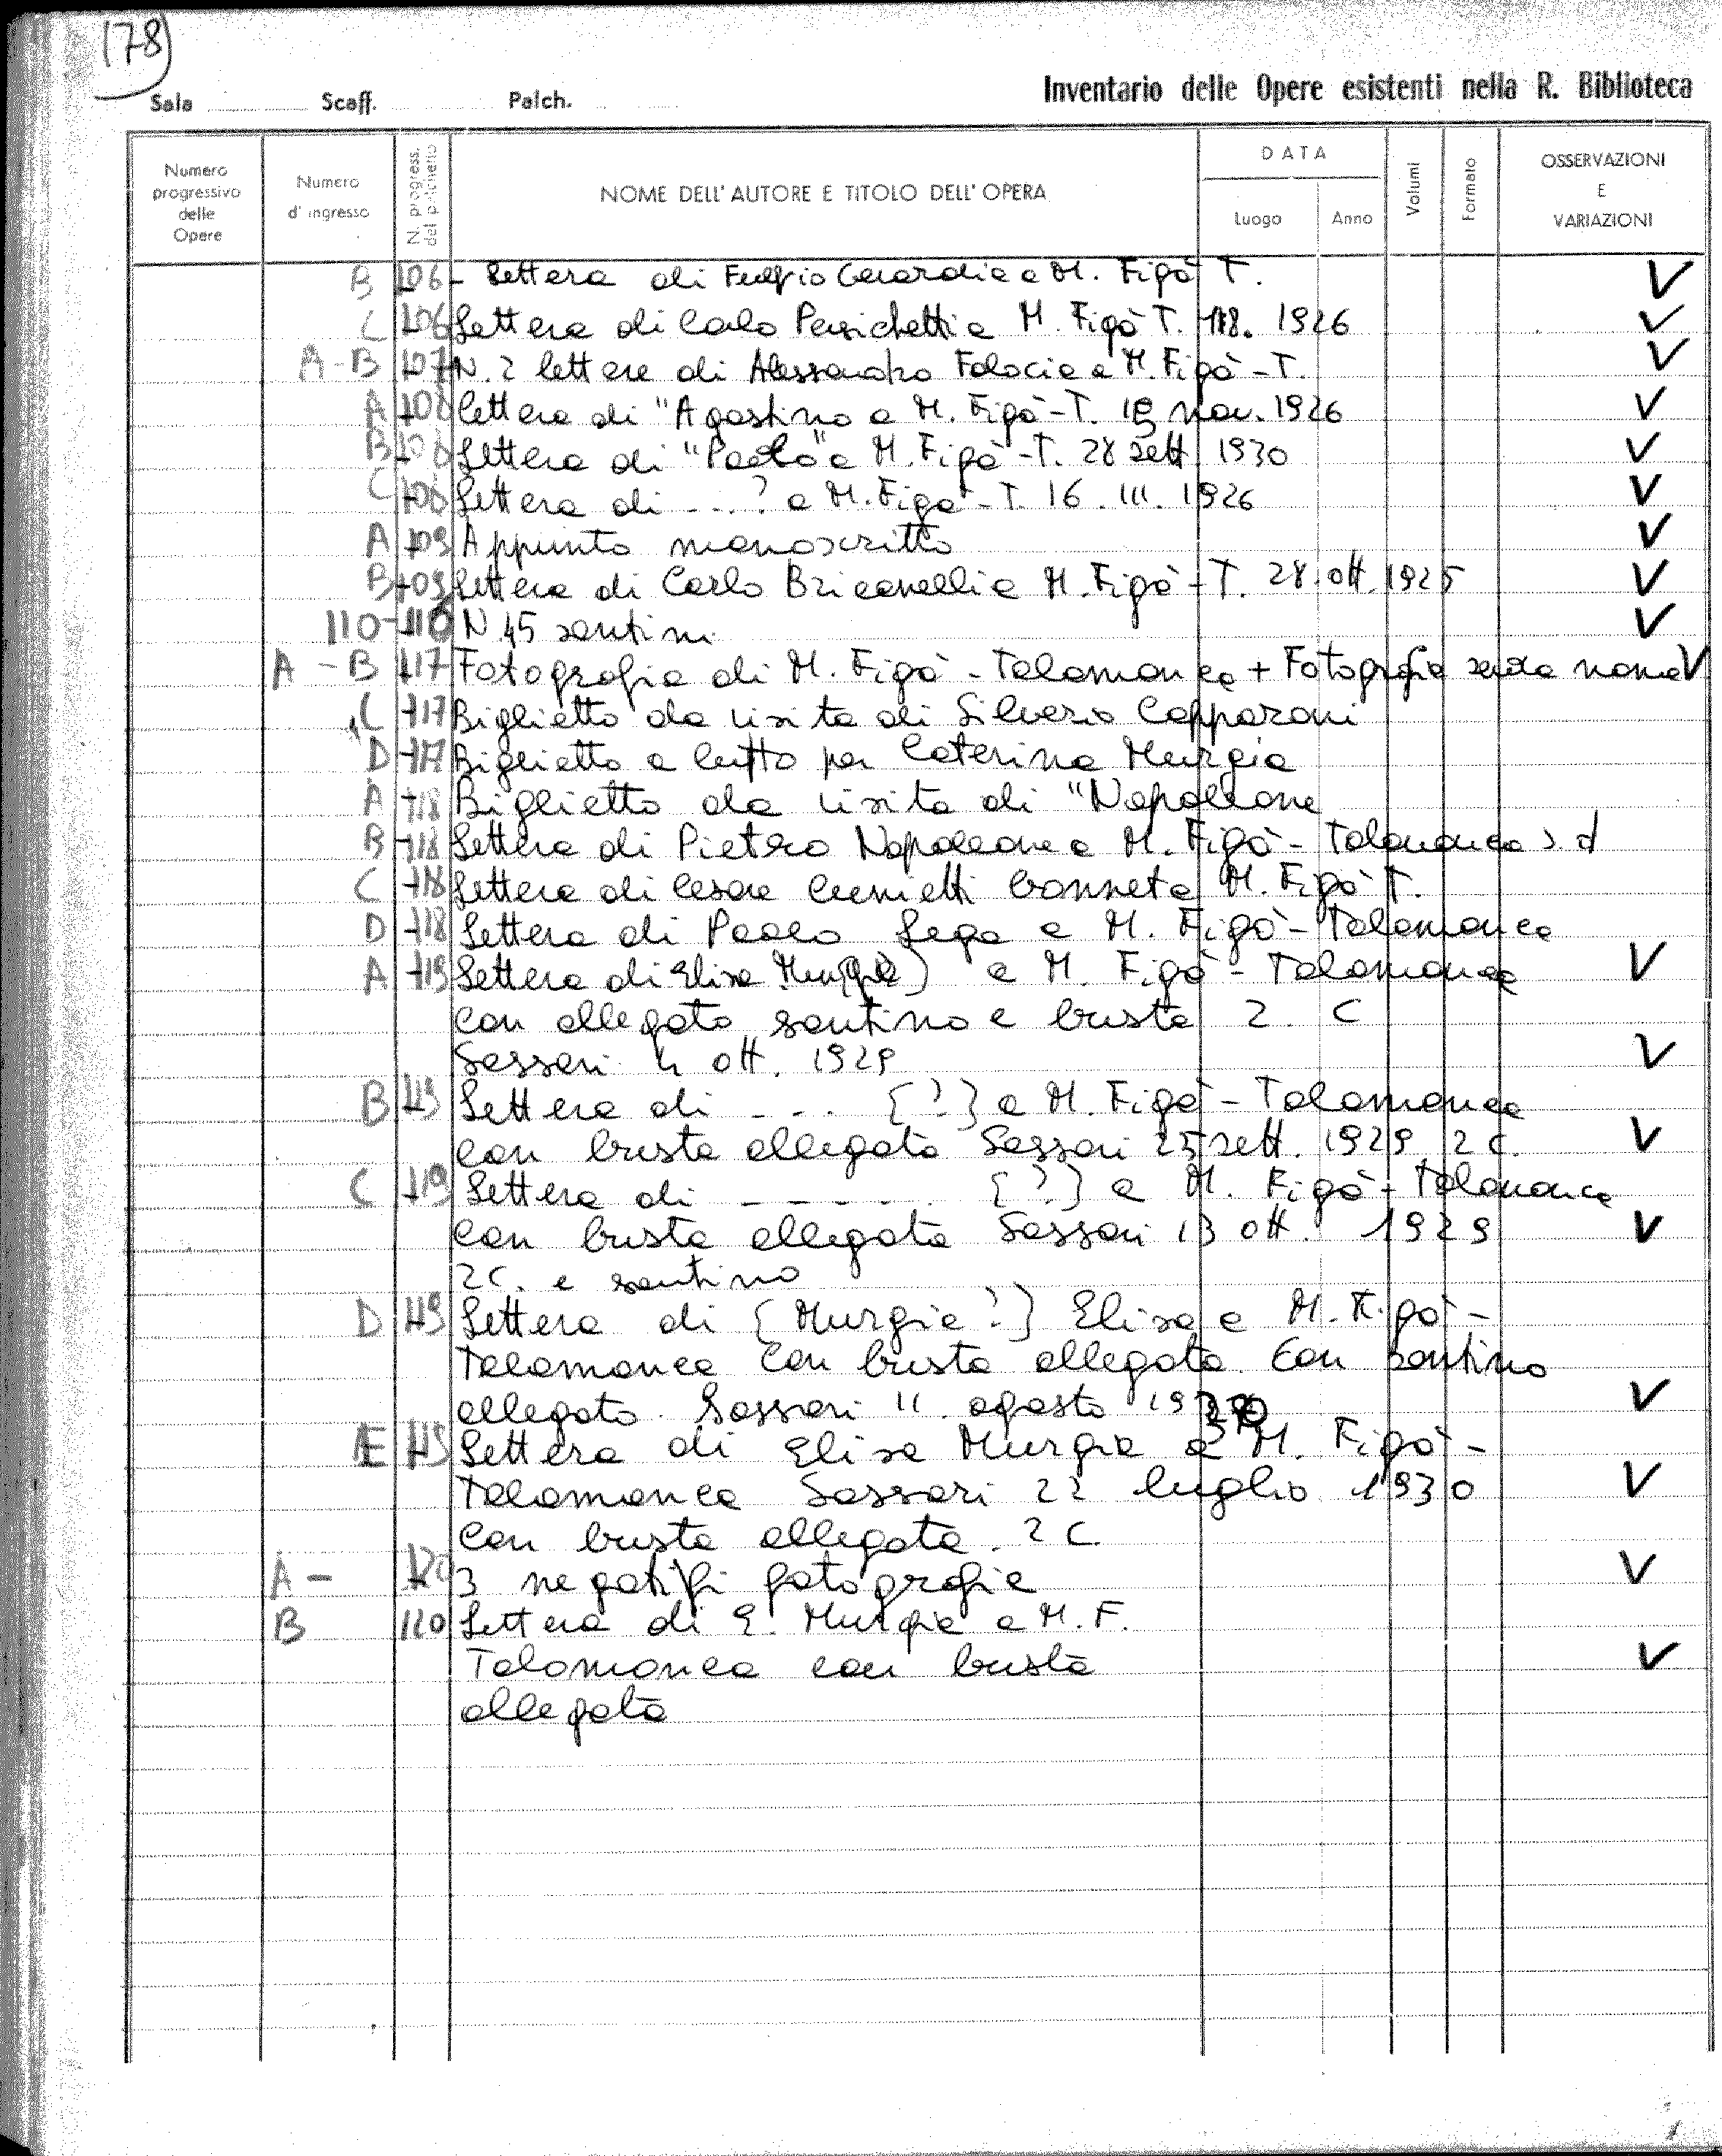 178
Sala Scaff. Palch. Inventario delle Opere esistenti nella R. Biblioteca
Numero progressivo delle Opere
Numero d' ingresso
N. progress. del palchetto
NOME DELL' AUTORE E TITOLO DELL' OPERA
DATA
Luogo Anno
Volumi
Formato
OSSERVAZIONI E VARIAZIONI
B 106 - Lettera di Fulvio a M. Figà T. V
C 106 Lettera di Carlo Persichetti a M. Figà T. 1926 V
A-B 107 N. 2 lettere di Alessandro a M. Figà-T. V
A 108 lettera di "Agostino a M. Figà-T. nov. 1926 V
B 108 Lettera di "Paolo" a M. Figà-T. 28 sett 1930 V
C 108 Lettera di ....? a M. Figà-T. 16. III. 1926 V
A 109 Appunto manoscritto V
B 109 Lettera di Carlo Bricarelli a M. Figà-T. 28 ott. 1925 V
110-116 N 45 santini V
A - B 117 Fotografia di M. Figà-Talamanca + Fotografia senza nome V
C 117 Biglietto da visita di Silverio Capparoni
D 117 Biglietto a lutto per Caterina Murgia
A 118 Biglietto da visita di "Napoleone
B 118 Lettera di Pietro Napoleone a M. Figà-Talamanca s.d
C 118 Lettera di Cesare a M. Figà T.
D 118 Lettera di Paolo Sega a M. Figà-Talamanca
A 119 Lettera di Elisa Mur(gia) a M. Figà-Talamanca V
con allegato santino e busta 2. C
Sassari 4 ott. 1929 V
B 119 Lettera di - - . [?] a M. Figà-Talamanca
con busta allegata Sassari 25 sett. 1929 2 c. V
C 119 Lettera di - - - . . [?] a M. Figà-Talamanca
con busta allegata Sassari 13 ott. 1929 V
2 C. e santino
D 119 Lettera di [Murgia?] Elisa a M. Figà-
Talamanca con busta allegata. Con santino
allegato. Sassari 11 agosto V
E 119 Lettera di Elisa Murgia a M. Figà-
Talamanca Sassari 22 luglio 1930 V
con busta allegata. 2 C.
A - 120 3 negativi fotografie V
B 120 Lettera di E. Murgia a M. F.
Talamanca con busta V
allegata